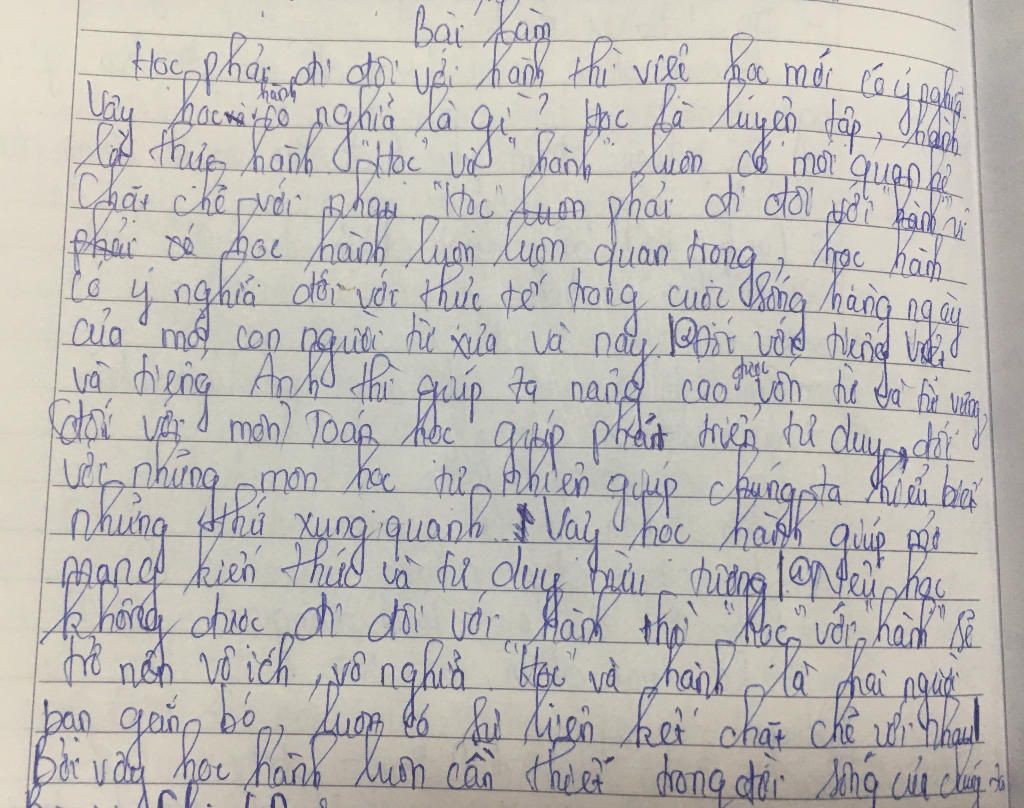 Bài làm
Học phải đi đôi với hành thì việc học mới có ý nghĩa
Vậy học hành có nghĩa là gì? Học là luyện tập, hành
là thực hành "Học" và "hành" luôn có mối quan hệ
Chặt chẽ với nhau "Học" luôn phải đi đôi với "hành" vì
phải có học hành luôn luôn quan trọng, học hành
có ý nghĩa đối với thực tế trong cuộc sống hàng ngày
của mỗi con người từ xưa và nay. Đối với tiếng Việt
và tiếng Anh thì giúp ta nâng cao được vốn từ và từ vựng,
(đối với môn) Toán học giúp phát triển tư duy, đối
với những môn học tự nhiên giúp chúng ta hiểu biết
những thứ xung quanh. Vậy học hành giúp mở
mang kiến thức và tư duy trừu tượng. Nếu học
không được đi đôi với hành thì "học" với "hành" sẽ
trở nên vô ích, vô nghĩa. "Học" và hành là hai người
bạn gắn bó, luôn có sự liên kết chặt chẽ với nhau
Bởi vậy học hành luôn cần thiết trong đời sống của chúng ta